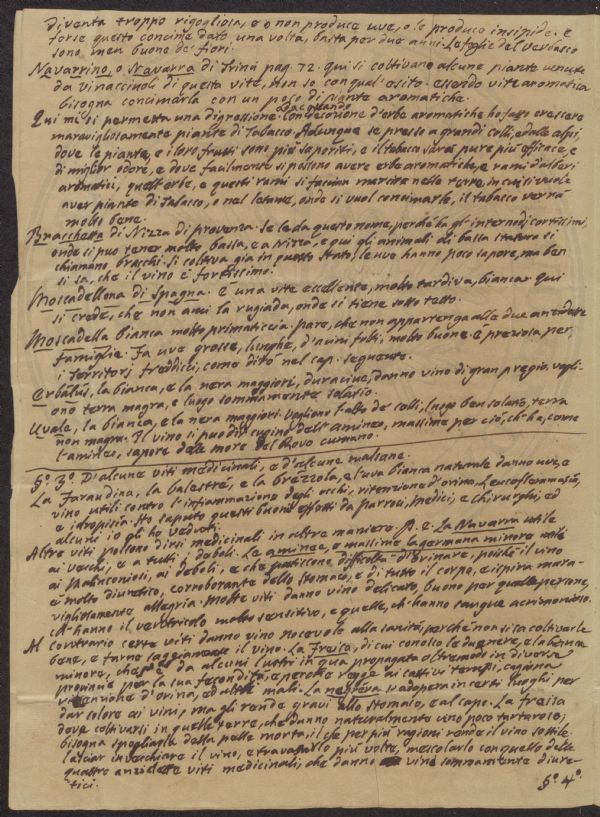 diventa troppo rigogliosa, e o non produce uve, o le produce insipide. e
forse questo concime dato una volta, basta per due anni. Le foglie del verbasco
sono men buone de' fiori.
Navarrino, o Navarra di Trino pag. 72. qui si coltivano alcune piante venute
da vinaccinoli di questa vite, Non so con qual' esito. essendo vite aromatica
bisogna concimarla con un poco di piante aromatiche.
Qui mi si permetta una digressione. Con decozione d'erbe aromatiche ho fatto crescere
maravigliosamente piante di Tabacco. Adunque se presso a grandi colli, ed alle alpi,
dove le piante, e i loro frutti sono più saporiti, e il tabacco sarà pure più efficace, e
di miglior odore, e dove facilmente si possono avere erbe aromatiche, e rami d'alberi
aromatici, quell'erbe, e questi rami si faccian marcire nelle terre, in cui si vuole
aver piante di Tabacco, o nel letame, onde si vuol concimarle, il tabacco verrà
molto bene.
Bracchetta di Nizza di provenza. Se le dà questo nome, perchè ha gl'internodi cortissimi,
onde si può tener molto bassa, e a Nizza, e qui gli animali di bassa statura si
chiamano, bracchi. Si coltiva già in questo Stato, le uve hanno poco sapore, ma ben
si sa, che il vino è fortissimo.
Moscadellona di Spagna. è una vite eccellente, molto tardiva, bianca. qui
si crede, che non ami la rugiada, onde si tiene sotto tetto.
Moscadella bianca molto primaticcia. pare, che non appartenga alle due anzidette
famiglie. Fa uve grosse, lunghe, d'acini folti, molto buone. è preziosa per
i territorj freddicci, come dirò nel cap. seguente.
Erbalus, la bianca, e la nera maggiori, duracine, danno vino di gran pregio, vogli-
ono terra magra, e luogo sommamente solatio.
Uvale, la bianca, e la nera maggiori. Vogliono falde de' colli, luogo ben solano, terra
non magra. Il vino si può dir cugino dell'Aminea, massime per ciò, ch' ha, come
l'aminea, sapore delle more del Rovo cumano.
§. 3.° D'alcune viti medicinali, e d'alcune malsane.
La Faraudina, la balestra, e la brezzola, e l'uva bianca naturale danno uve, e
vino utili contro l'infiammazione degli occhi, ritenzione d'orina, Leucoflemmasia,
e idropisia. Ho saputo questi buoni effetti da Parroci, Medici, e chirurghi, ed
alcuni io gli ho veduti.
Altre viti possono dirsi medicinali in altre maniere. P. e. La Navarra utile
ai vecchi, e a tutti i deboli. Le aminee, e massime la germana minore utile
ai Malinconiosi, ai deboli, e che patiscono difficoltà d'Orinare, poichè il vino
è molto diuretico, corroborante dello Stomaco, e di tutto il corpo, e ispira mara-
vigliosamente allegria. Molte viti danno vino delicato, buono per quelle persone,
ch' hanno il ventricolo molto sensitivo, e quelle, ch' hanno sangue acrimonioso.
Al contrario certe viti danno vino nocevole alla sanità, perchè non si sa coltivarle
bene, e farne saggiamente il vino. La Freisa, di cui conosco le due nere, e la bianca
minore, che è da alcuni lustri in qua propagata oltremodo in diverse
provincie per la sua fecondità, e perchè regge ai cattivi tempi, cagiona
ritenzione d'orina, ed altri mali. La negrera s'adopera in certi luoghi per
dar colore ai vini, ma gli rende gravi allo Stomaco, e al capo. La freisa
deve coltivarsi in quelle terre, che danno naturalmente vino poco tartaroso;
bisogna spogliarla della pelle morta, il che per più ragioni rende il vino sottile.
lasciar invecchiare il vino, e travasarlo più volte, mescolarlo con quello delle
quattro anzidette viti medicinali, che danno vino sommamente diure-
tici.
§. 4.°